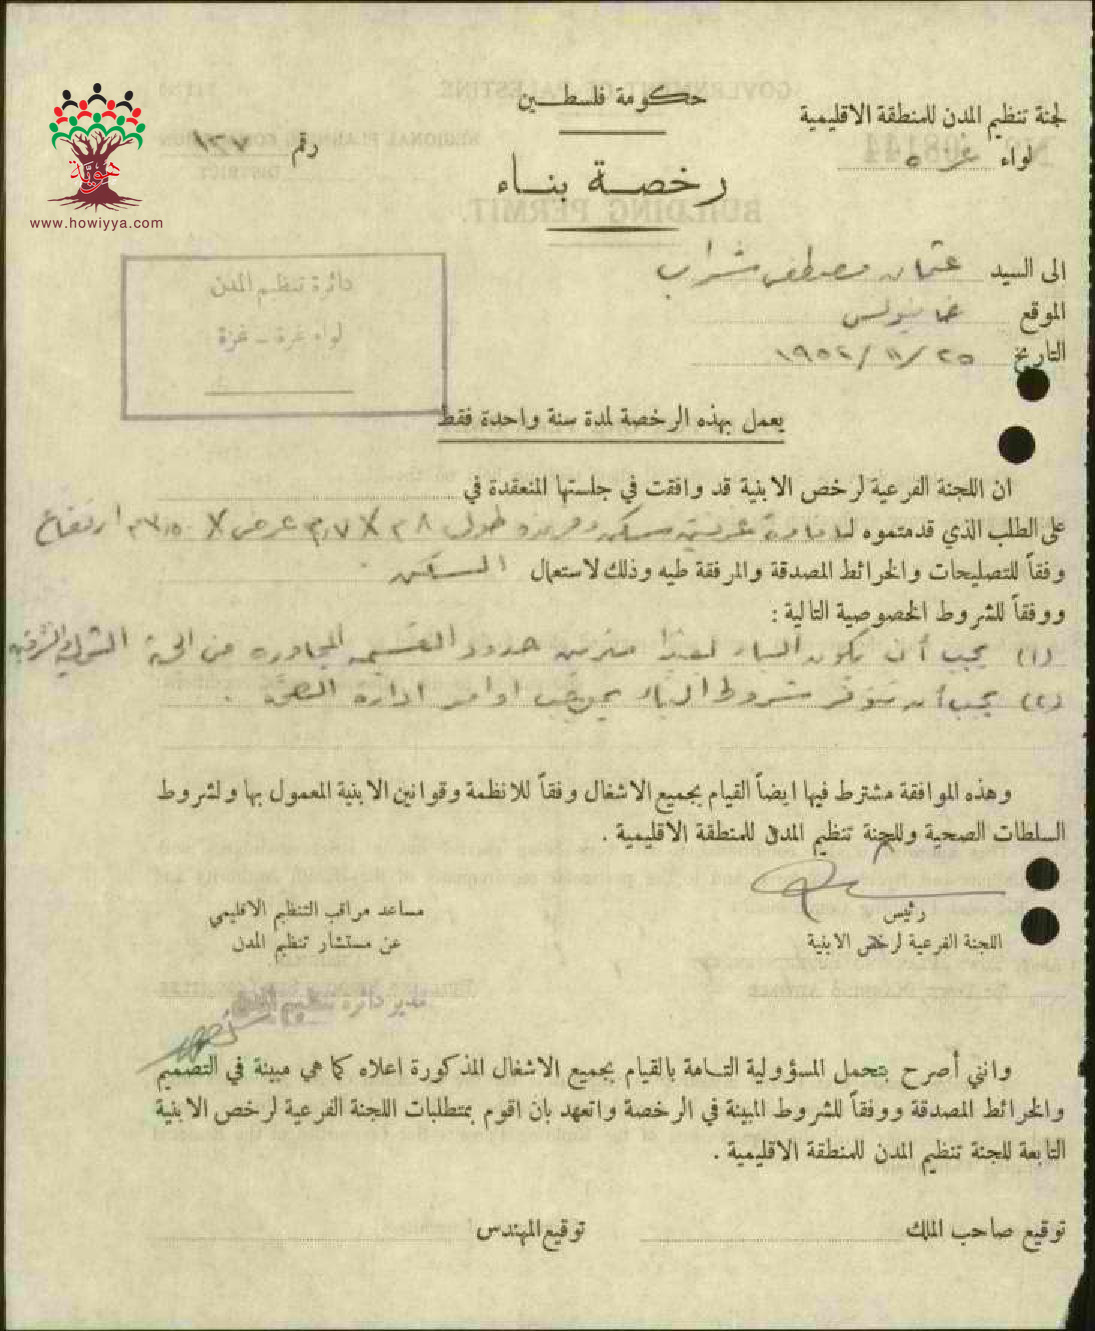 حكومة فلسطين
لجنة تنظيم المدن للمنطقة الاقليمية
لواء غزه
رقم ١٣٧
رخصة بناء
هوية
www.howiyya.com
دائرة تنظيم المدن
لواء غزة - غزة
الى السيد عثمان مصطفى شراب
الموقع خانيونس
التاريخ ٢٥/١١/١٩٥٢
يعمل بهذه الرخصة لمدة سنة واحدة فقط
ان اللجنة الفرعية لرخص الابنية قد وافقت في جلستها المنعقدة في
على الطلب الذي قدمتموه لاقامة سكن طول عرض ارتفاع
وفقاً للتصليحات والخرائط المصدقة والمرفقة طيه وذلك لاستعمال السكن
ووفقاً للشروط الخصوصية التالية :
(١) يجب أن يكون البناء بعيدا مترين حدود القسيمه المجاوره من الجهة
(٢) يجب أن تتوفر شروط البناء بموجب اوامر ادارة الصحة .
وهذه الموافقة مشترط فيها ايضاً القيام بجميع الاشغال وفقاً للانظمة وقوانين الابنية المعمول بها ولشروط
السلطات الصحية وللجنة تنظيم المدن للمنطقة الاقليمية .
رئيس
اللجنة الفرعية لرخص الابنية
مساعد مراقب التنظيم الاقليمي
عن مستشار تنظيم المدن
مدير دائرة تنظيم المدن
وانني أصرح بتحمل المسؤولية التامة بالقيام بجميع الاشغال المذكورة اعلاه كما هي مبينة في التصميم
والخرائط المصدقة ووفقاً للشروط المبينة في الرخصة واتعهد بان اقوم بمتطلبات اللجنة الفرعية لرخص الابنية
التابعة للجنة تنظيم المدن للمنطقة الاقليمية .
توقيع صاحب الملك
توقيع المهندس